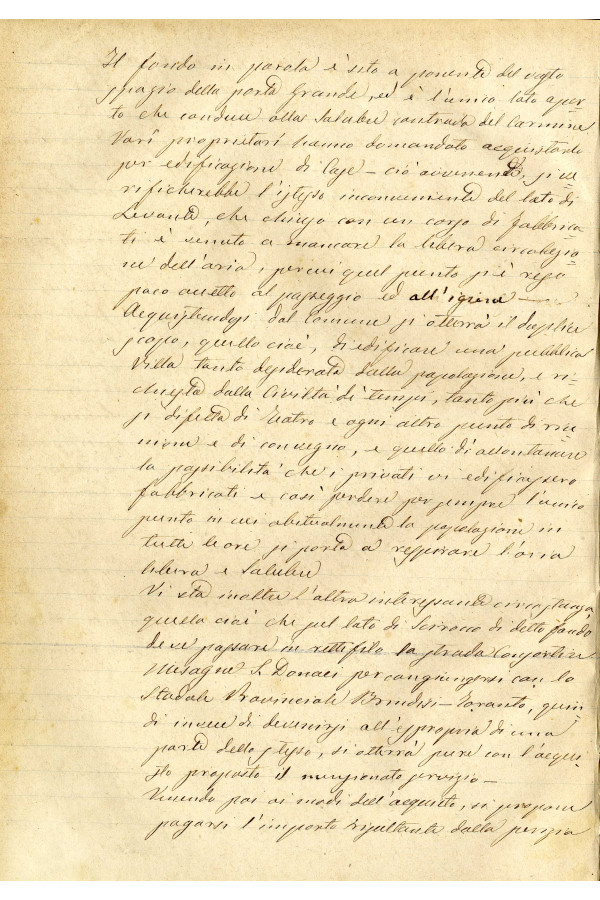 Il fondo in parola è sito a ponente del vasto
spazio della porta Grande, ed è l'unico lato aper
to che conduce alla salubre contrada del Carmine
Varî proprietarî hanno domandato acquistarlo
per edificazione di Case – ciò avvenendo, si ve
rificherebbe l'istesso inconveniente del lato di
Levante, che chiuso con un corso di fabbrica=
ti è venuto a mancare la libera circolazio
ne dell'aria, per cui quel punto si è reso
poco accetto al passeggio ed all'igiene —
Acquistandosi dal Comune si otterrà il duplice
scopo, quello cioè, di edificare una pubblica
Villa tanto desiderata dalla popolazione, e ri=
chiesta dalla Civiltà di tempi, tanto più che
si difetta di Teatro e ogni altro punto di riu
nione e di convegno, e quello di allontanare
la possibilità che i privati vi edificassero
fabbricati e così perdere per sempre l'unico
punto in cui abitualmente la popolazione in
tutte le ore si porta a respirare l'aria
libera e salubre
Vi sta inoltre l'altra interessante circostanza
quella cioè che sul lato di Scirocco di detto fondo
deve passare in rettifilo la strada Consortile
Mesagne S. Donaci per congiungersi con la
Stradale Provinciale Brindisi – Taranto, quin
di invece di devenirsi all'espropria di una
parte dello stesso, si otterrà pure con l'acqui=
sto proposto il menzionato servizio –
Venendo poi ai modi dell'acquisto, si propone
pagarsi l'importo risultante dalla perizia